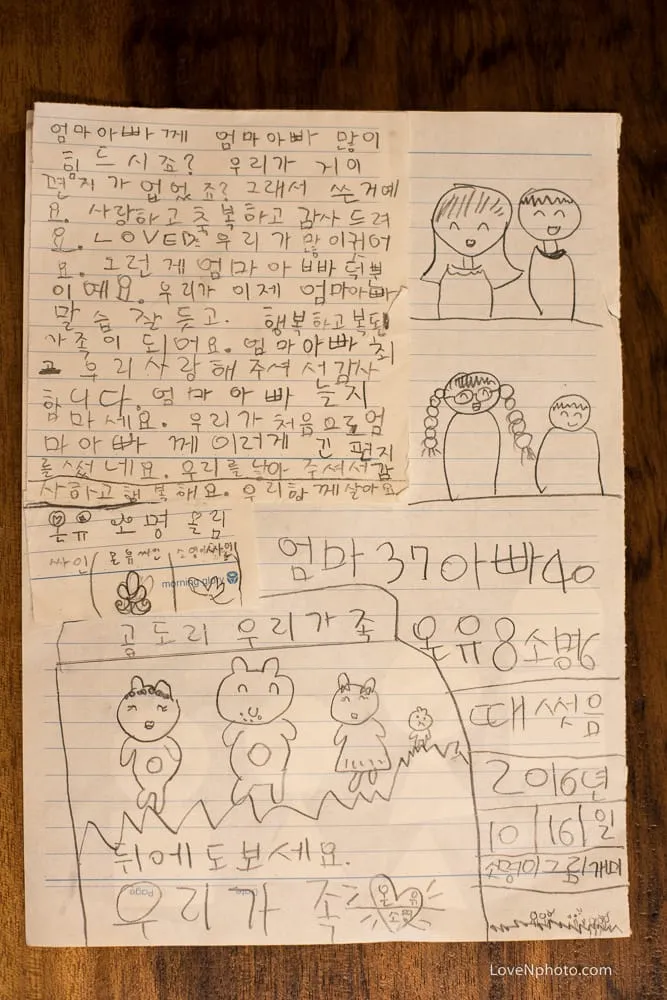 엄마아빠께 엄마아빠 많이
힘드시죠? 우리가 거이
편지가 없었죠? 그래서 쓴거예
요. 사랑하고 축복하고 감사드려
요. LOVE 우리가 많이귀어
요. 그런게 엄마아빠 덕뿌
이예요. 우리가 이제 엄마아빠
말씀 잘 듣고. 행복하고 복된
가족이 되어요. 엄마아빠 최
고 우리사랑해주셔서 감사
함니다. 엄마아빠 늘지
마세요. 우리가 처음으로 엄
마아빠께 이러게 긴 편지
를 썼네요. 우리를 낳아 주셔서 감
사하고 행복해요. 우리함께살아요
온유 소명 올림
싸인 온유싸인 소명이싸인
morning glory
엄마 37 아빠 40
온유8 소명6
곰도리 우리가족
때 썻음
2016년
10 16 일
소명이그림 개미
뒤에도보세요.
우리가족
온유
소명
Page
LoveNphoto.com